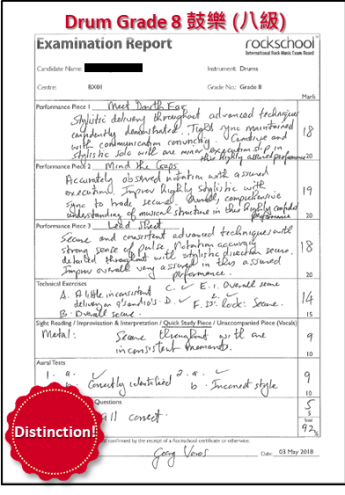 Drum Grade 8 鼓樂 (八級)
Examination Report
rockschool
International Rock Music Exam Board
Candidate Name:
Instrument: Drums
Centre: BX01
Grade No.: Grade 8
Mark
Performance Piece 1 Meet Darth Ear
Stylistic delivery throughout advanced techniques
confidently demonstrated. Tight sync maintained
with communication convincing. Creative and
stylistic solo with one minor execution slip in
this highly assured performance
18
20
Performance Piece 2 Mind the Gaps
Accurately observed notation with assured
execution. Improv highly stylistic with
sync to track secure. Overall, comprehensive
understanding of musical structure in this highly confident
performance
19
20
Performance Piece 3 Lead Sheet
Secure and consistent advanced techniques with
strong sense of pulse. Notation accuracy
detailed throughout with stylistic direction secure.
Improv overall very assured in this assured
performance.
18
20
Technical Exercises
A. A little inconsistent C. ✓ E. 1. Overall secure
delivery D. ✓ 2. ✓
B. Overall secure. Rock: Secure.
14
15
Sight Reading / Improvisation & Interpretation / Quick Study Piece / Unaccompanied Piece (Vocals)
Metal: Secure throughout with one
inconsistent
9
10
Aural Tests
1. a. ✓ 2. a. ✓
b. Correctly identified b. Incorrect style
9
10
Questions
all correct.
5
5
Total
92%
confirmed by the receipt of a Rockschool certificate or otherwise.
Date 03 May 2018
Distinction!